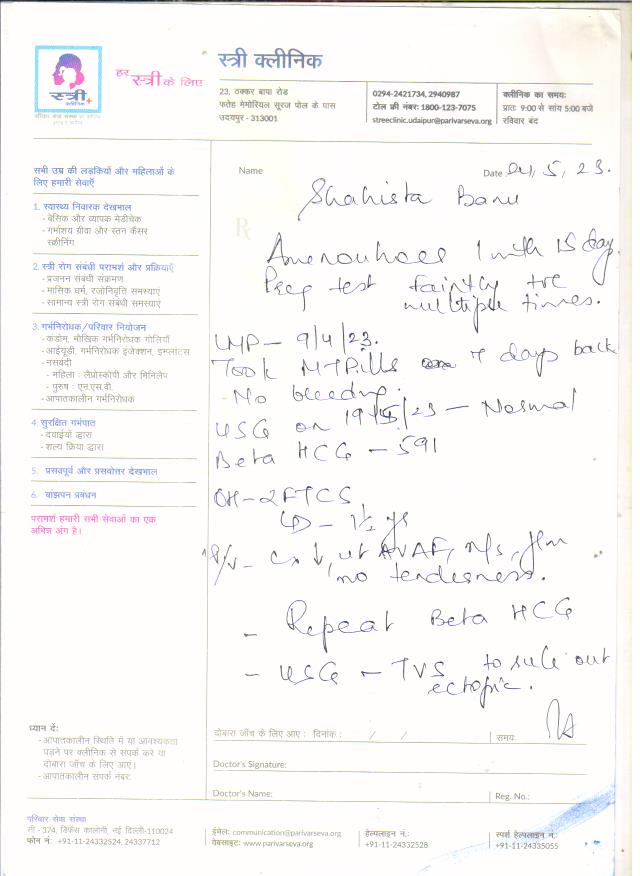 स्त्री
क्लीनिक
हर स्त्री के लिए
स्त्री क्लीनिक
23, ठक्कर बापा रोड
फतेह मेमोरियल सूरज पोल के पास
उदयपुर - 313001
0294-2421734, 2940987
टोल फ्री नंबर: 1800-123-7075
streeclinic.udaipur@parivarseva.org
क्लीनिक का समय:
प्रातः 9:00 से सांय 5:00 बजे
रविवार बंद
सभी उम्र की लडकियों और महिलाओं के
लिए हमारी सेवाएँ
1. स्वास्थ्य निवारक देखभाल
- बेसिक और व्यापक मेडीचेक
- गर्भाशय ग्रीवा और स्तन कैंसर
स्क्रीनिंग
2. स्त्री रोग संबंधी परामर्श और प्रक्रियाएँ
- प्रजनन संबंधी संक्रमण
- मासिक धर्म, रजोनिवृति समस्याएं
- सामान्य स्त्री रोग संबंधी समस्याएं
3. गर्भनिरोधक/परिवार नियोजन
- कंडोम, मौखिक गर्भनिरोधक गोलियाँ
- आईयूडी, गर्भनिरोधक इंजेक्शन, इम्प्लांटस
- नसबंदी
- महिला : लैप्रोस्कोपी और मिनिलैप
- पुरुष : एन.एस.वी.
- आपातकालीन गर्भनिरोधक
4. सुरक्षित गर्भपात
- दवाईयों द्वारा
- शल्य क्रिया द्वारा
5. प्रसवपूर्व और प्रसवोत्तर देखभाल
6. बांझपन प्रबंधन
परामर्श हमारी सभी सेवाओं का एक
अभिन्न अंग है।
Name
Date 24, 5, 23.
Rx
Shahista Banu
Amenorrhoea 1 mth 15 day.
Preg test faintly +ve
multiple times.
LMP - 9/4/23.
Took MTPills 7 days back
- No bleeding.
USG on 19/5/23 - Normal
Beta HCG - 591
OH - 2FTCS
LD - 1½ yrs
P/V - Cx ↓, ut AVAF, n/s,
no tenderness.
- Repeat Beta HCG
- USG - TVS to rule out
ectopic.
ध्यान दें:
- आपातकालीन स्थिति में या आवश्यकता
पड़ने पर क्लीनिक से संपर्क करे या
दोबारा जाँच के लिए आएं।
- आपातकालीन संपर्क नंबर:
दोबारा जाँच के लिए आए : दिनांक : / /
समय:
Doctor's Signature:
Doctor's Name:
Reg. No.:
परिवार सेवा संस्था
सी - 374, डिफेंस कालोनी, नई दिल्ली-110024
फोन नं: +91-11-24332524, 24337712
ईमेल: communication@parivarseva.org
वेबसाइट: www.parivarseva.org
हेल्पलाइन नं.:
+91-11-24332528
स्पर्श हेल्पलाइन नं.:
+91-11-24335055